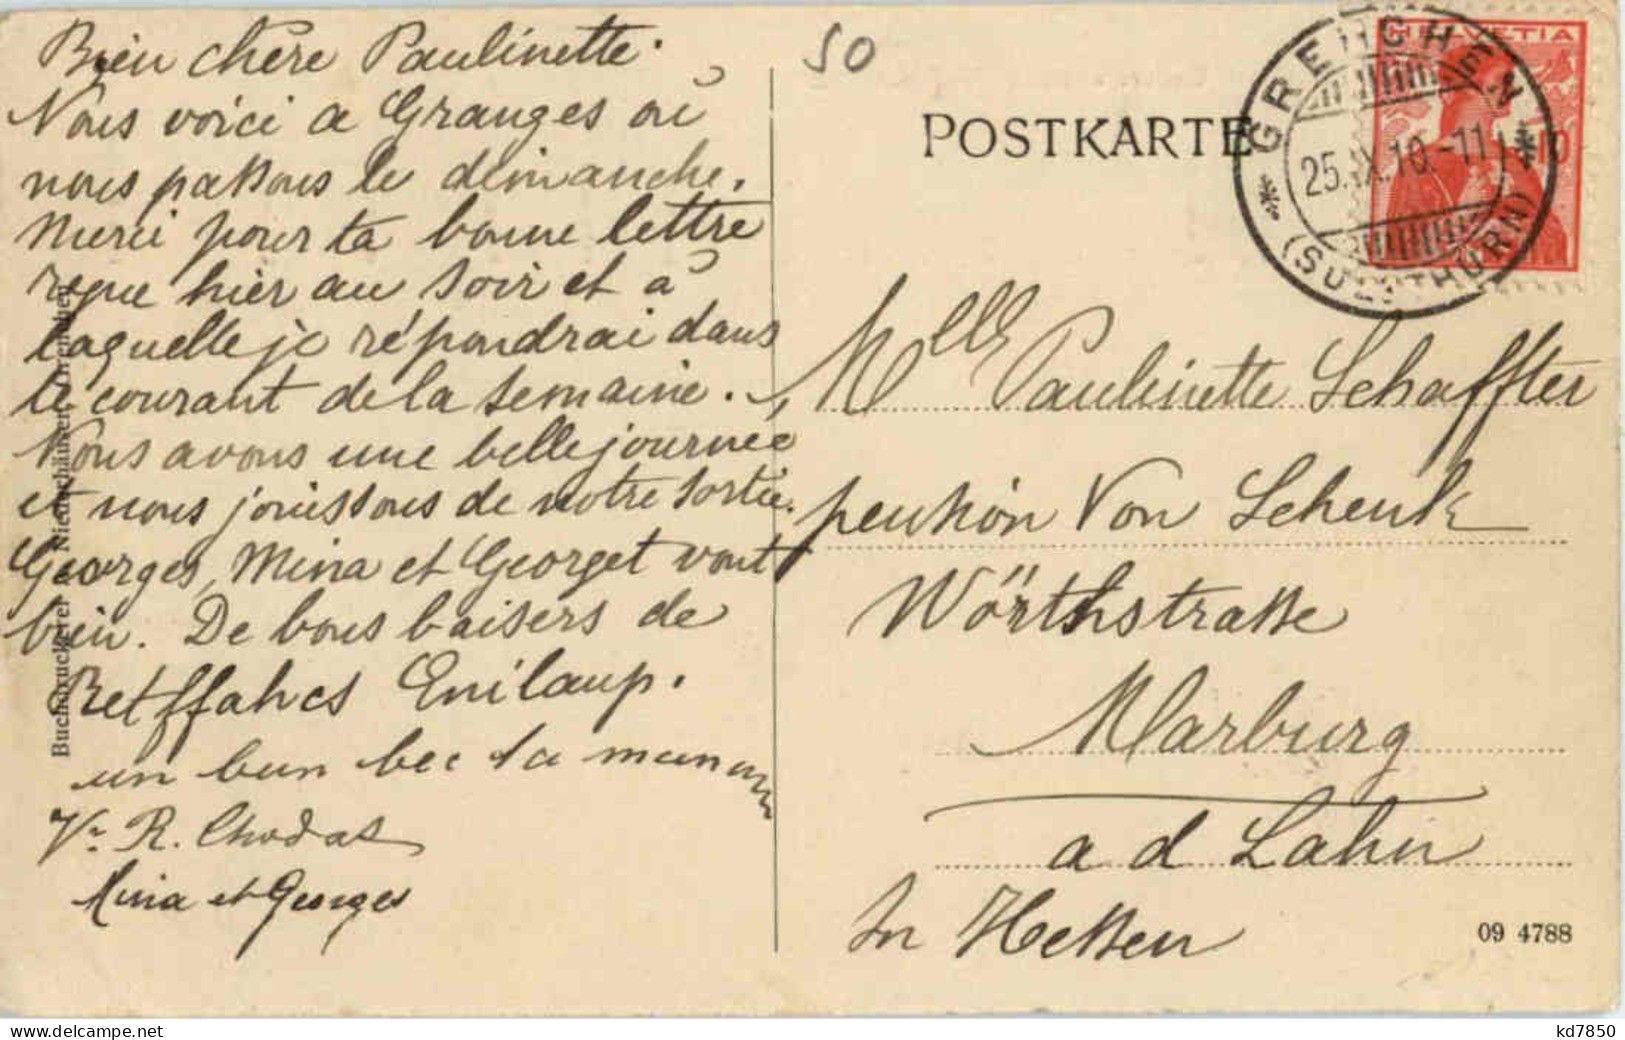 Bien chère Paulinette.
Nous voici a Granges où
nous passons le dimanche.
Merci pour ta bonne lettre
reçue hier au soir et à
laquelle je répondrai dans
le courant de la semaine.
Nous avons une belle journée
et nous jouissons de notre sortie.
Georges, Mina et Georget vont
bien. De bons baisers de
Retffahcs Enilaup.
un bon bec ta maman
Vve R. Chodat
Mina et Georges
Buchdruckerei Niederhäuser, Grenchen
50
POSTKARTE
HELVETIA
10
GRENCHEN
25.IX.10.-11
(SOLOTHURN)
Mlle Paulinette Schaffter
pension Von Schenk
Wörthstrasse
Marburg
a d Lahn
In Hessen
09 4788
delcampe.net
kd7850